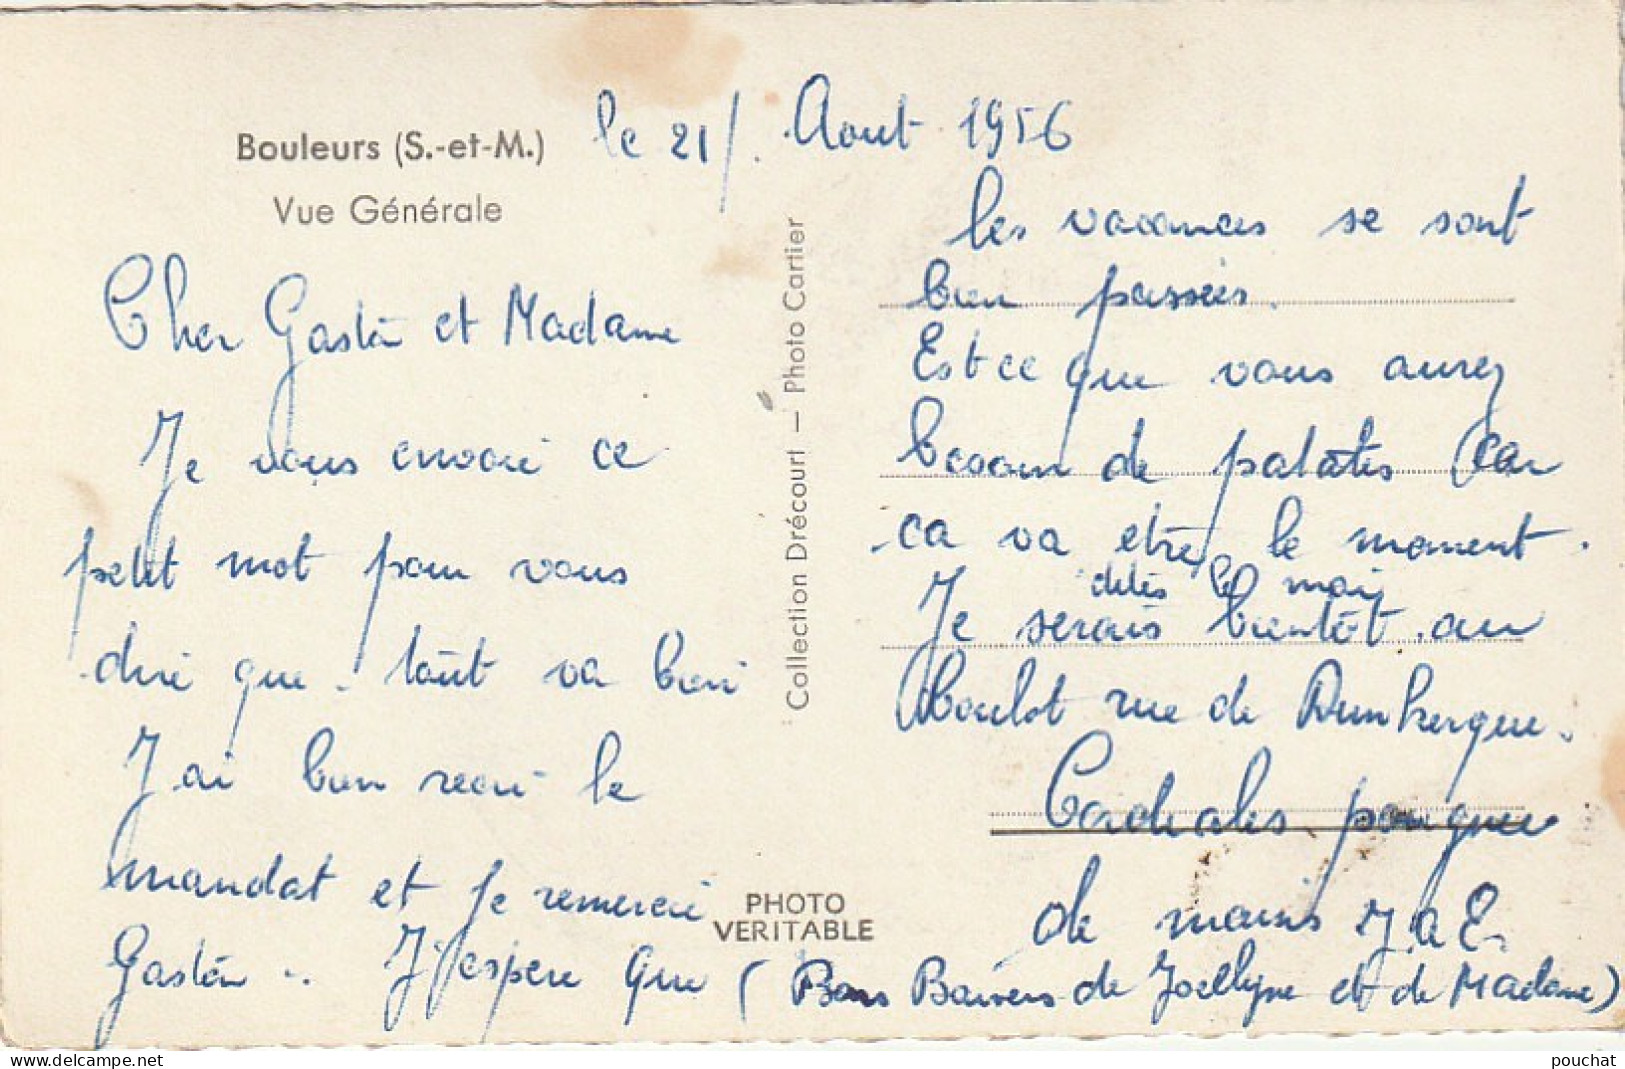 Bouleurs (S.-et-M.)
Vue Générale
le 21/. Aout 1956
Cher Gaston et Madame
Je vous envoie ce
petit mot pour vous
dire que tout va bien
J'ai bien recu le
mandat et je remercie
Gaston. J'espere que
les vacances se sont
bien passées.
Est ce que vous aurez
besoin de patates car
ca va etre le moment.
dites le moi
Je serais bientôt au
boulot rue de Dunkerque.
Cordiales poignee
de mains J a E.
(Bons Baisers de Jocelyne et de Madame)
Collection Drécourt — Photo Cartier
PHOTO
VERITABLE
www.delcampe.net
pouchat